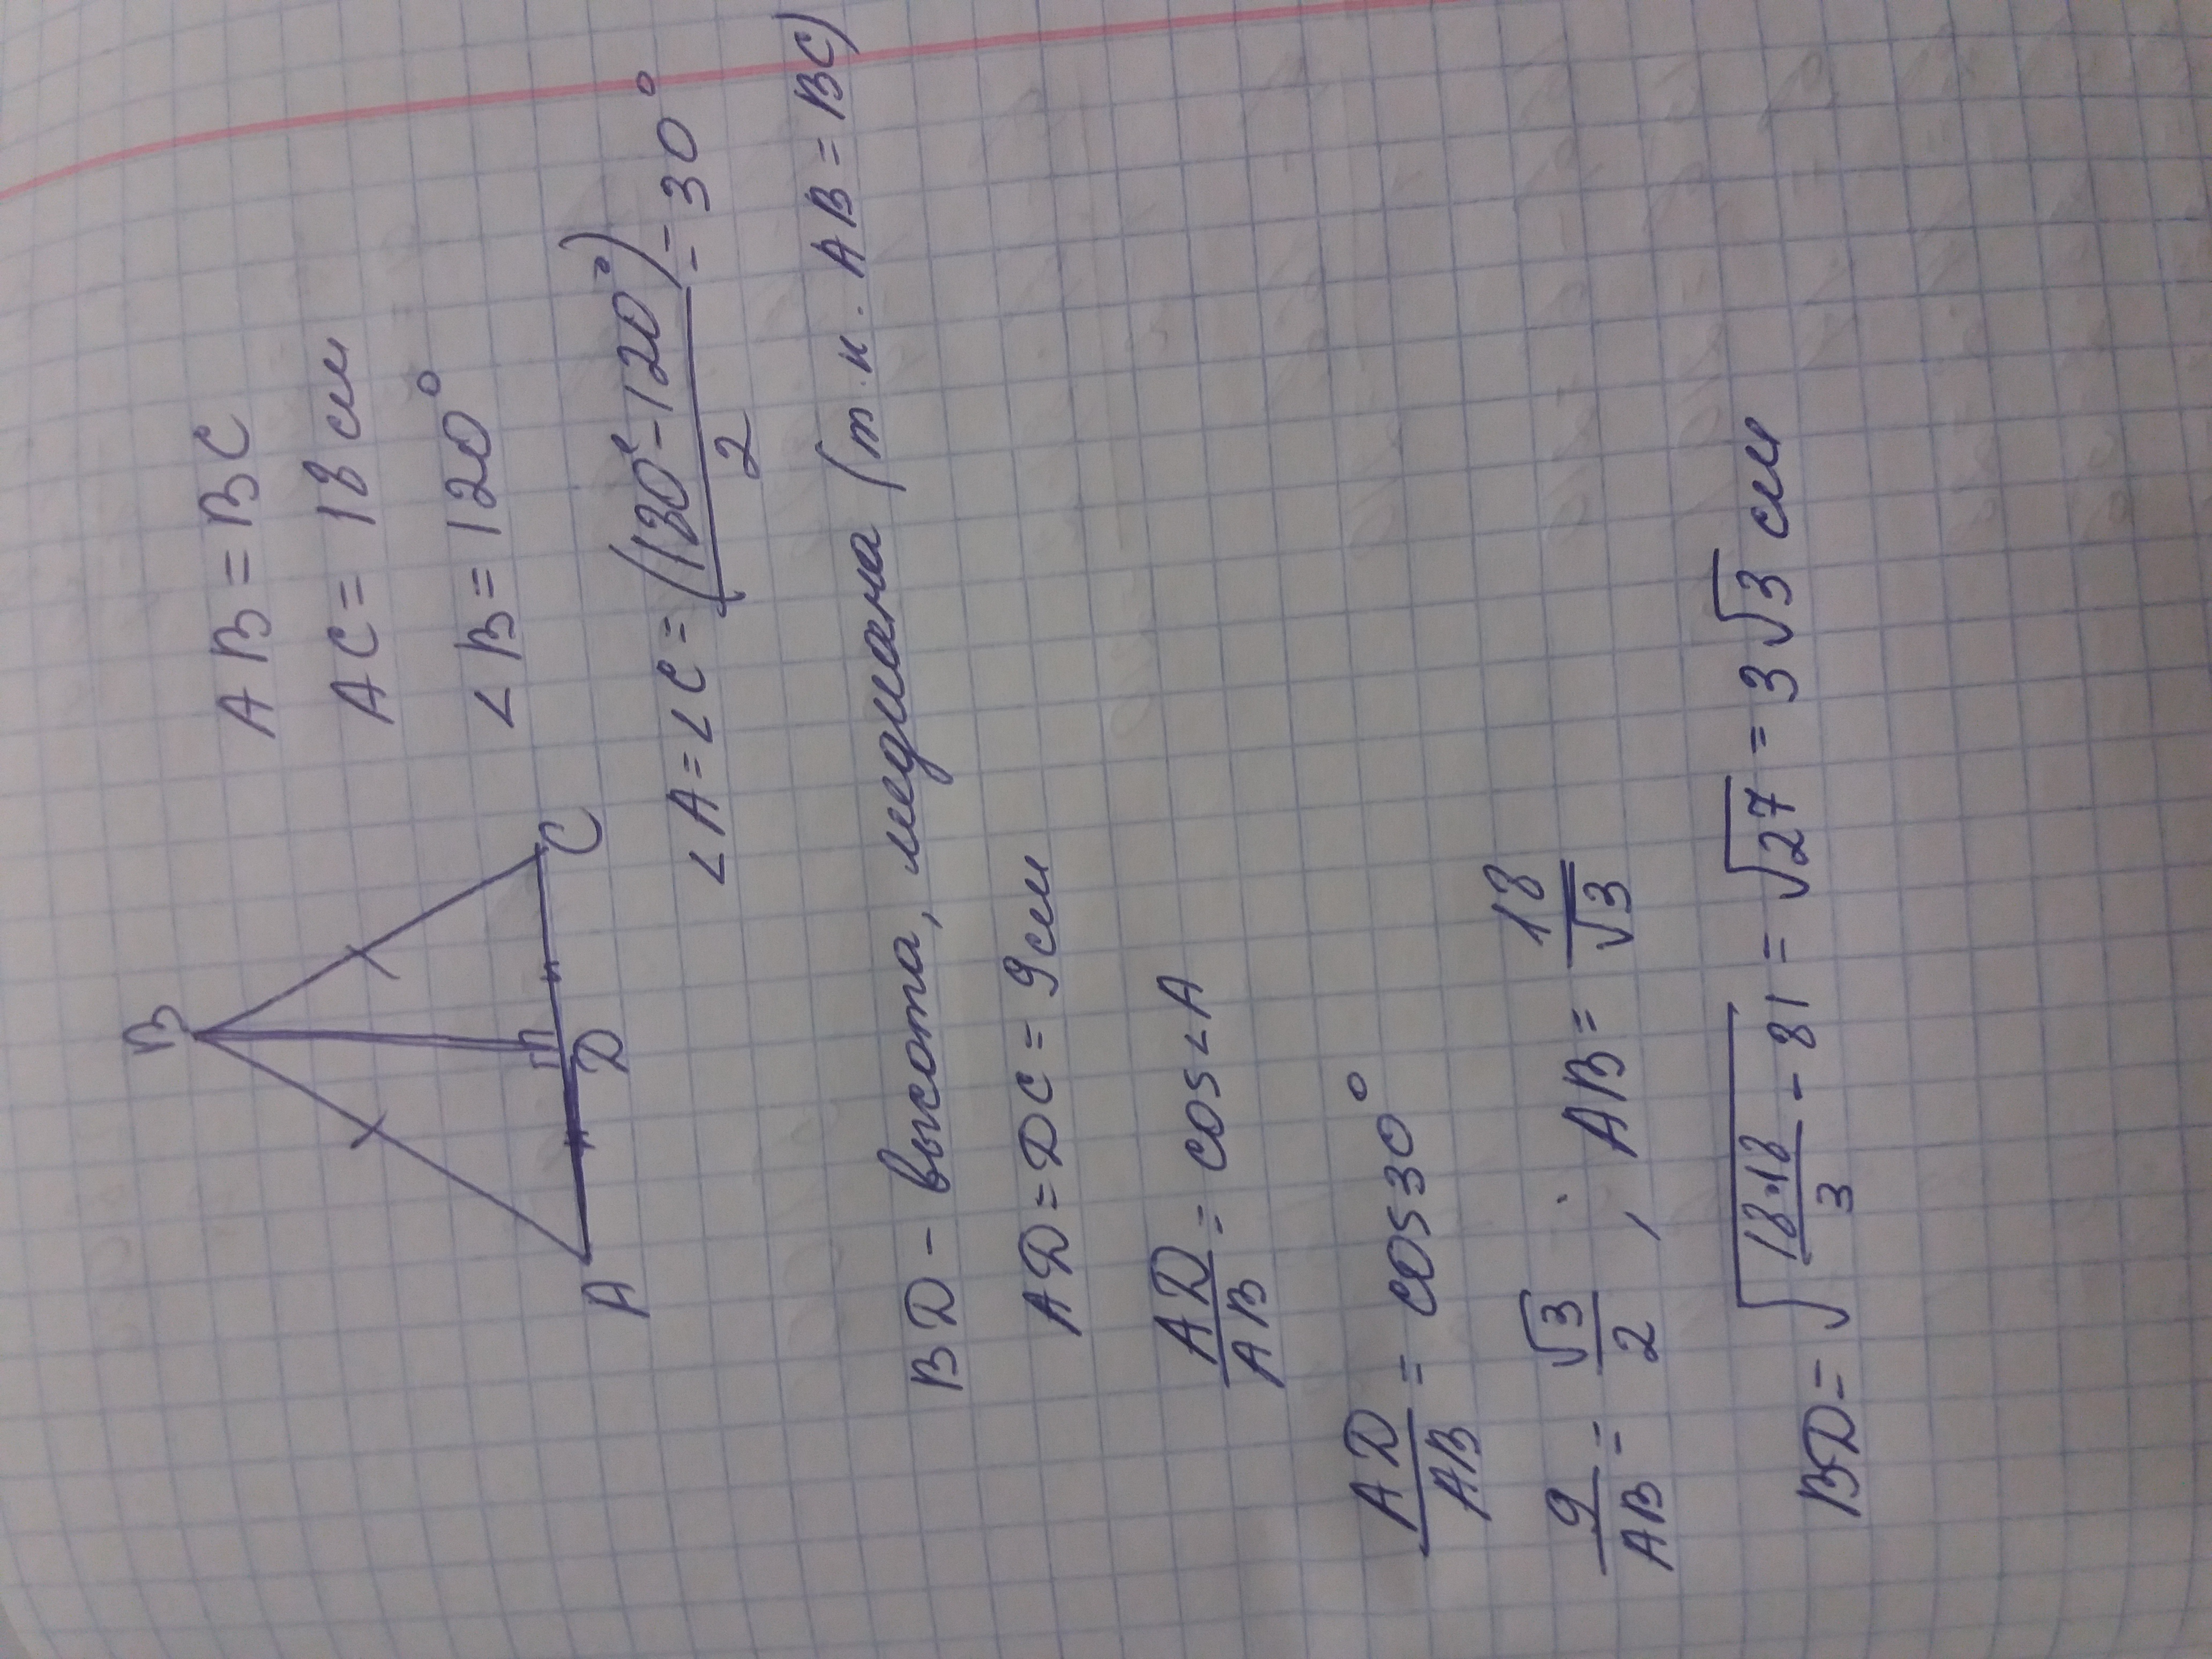 B
A
D
C
AB = BC
AC = 18 см
∠B = 120°
∠A = ∠C = (180° - 120°)/2 = 30°
BD - высота, медиана (т.к. AB = BC)
AD = DC = 9 см
AD/AB = cos∠A
AD/AB = cos30°
9/AB = √3/2 , AB = 18/√3
BD = √(18·18/3 - 81) = √27 = 3√3 см